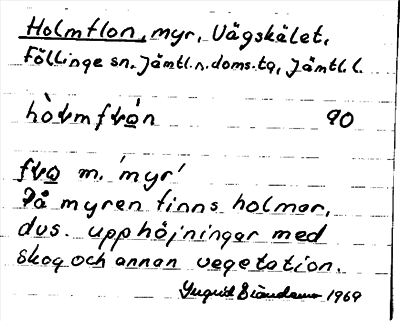 Holmflon, myr, Vågskålet,
Föllinge sn. Jämtl.n.doms.tg, Jämtl.l.
90
m. 'myr'
På myren finns holmar,
dvs. upphöjningar med
skog och annan vegetation.
Ingrid 1969